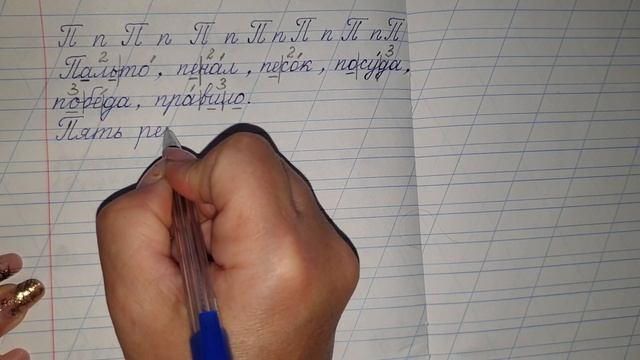 П п П п П п П п П п П п П
Пальто́, пена́л, песо́к, посу́да,
побе́да, пра́вило.
Пять ре